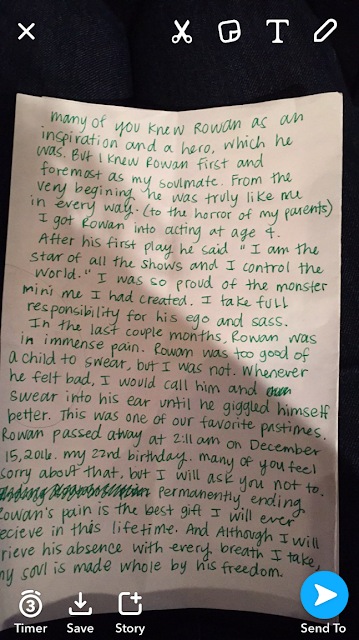 many of you knew Rowan as an
inspiration and a hero, which he
was. But I knew Rowan first and
foremost as my soulmate. From the
very begining, he was truly like me
in every way. (to the horror of my parents)
I got Rowan into acting at age 4.
After his first play he said "I am the
star of all the shows and I control the
world." I was so proud of the monster
mini me I had created. I take full
responsibility for his ego and sass.
In the last couple months, Rowan was
in immense pain. Rowan was too good of
a child to swear, but I was not. Whenever
he felt bad, I would call him and
swear into his ear until he giggled himself
better. This was one of our favorite pastimes.
Rowan passed away at 2:11 am on December
15, 2016. my 22nd birthday. many of you feel
sorry about that. but I will ask you not to.
permanently ending
Rowan's pain is the best gift I will ever
ecieve in this lifetime. And Although I will
rieve his absence with every breath I take,
my soul is made whole by his freedom.
3
Timer
Save
Story
Send To